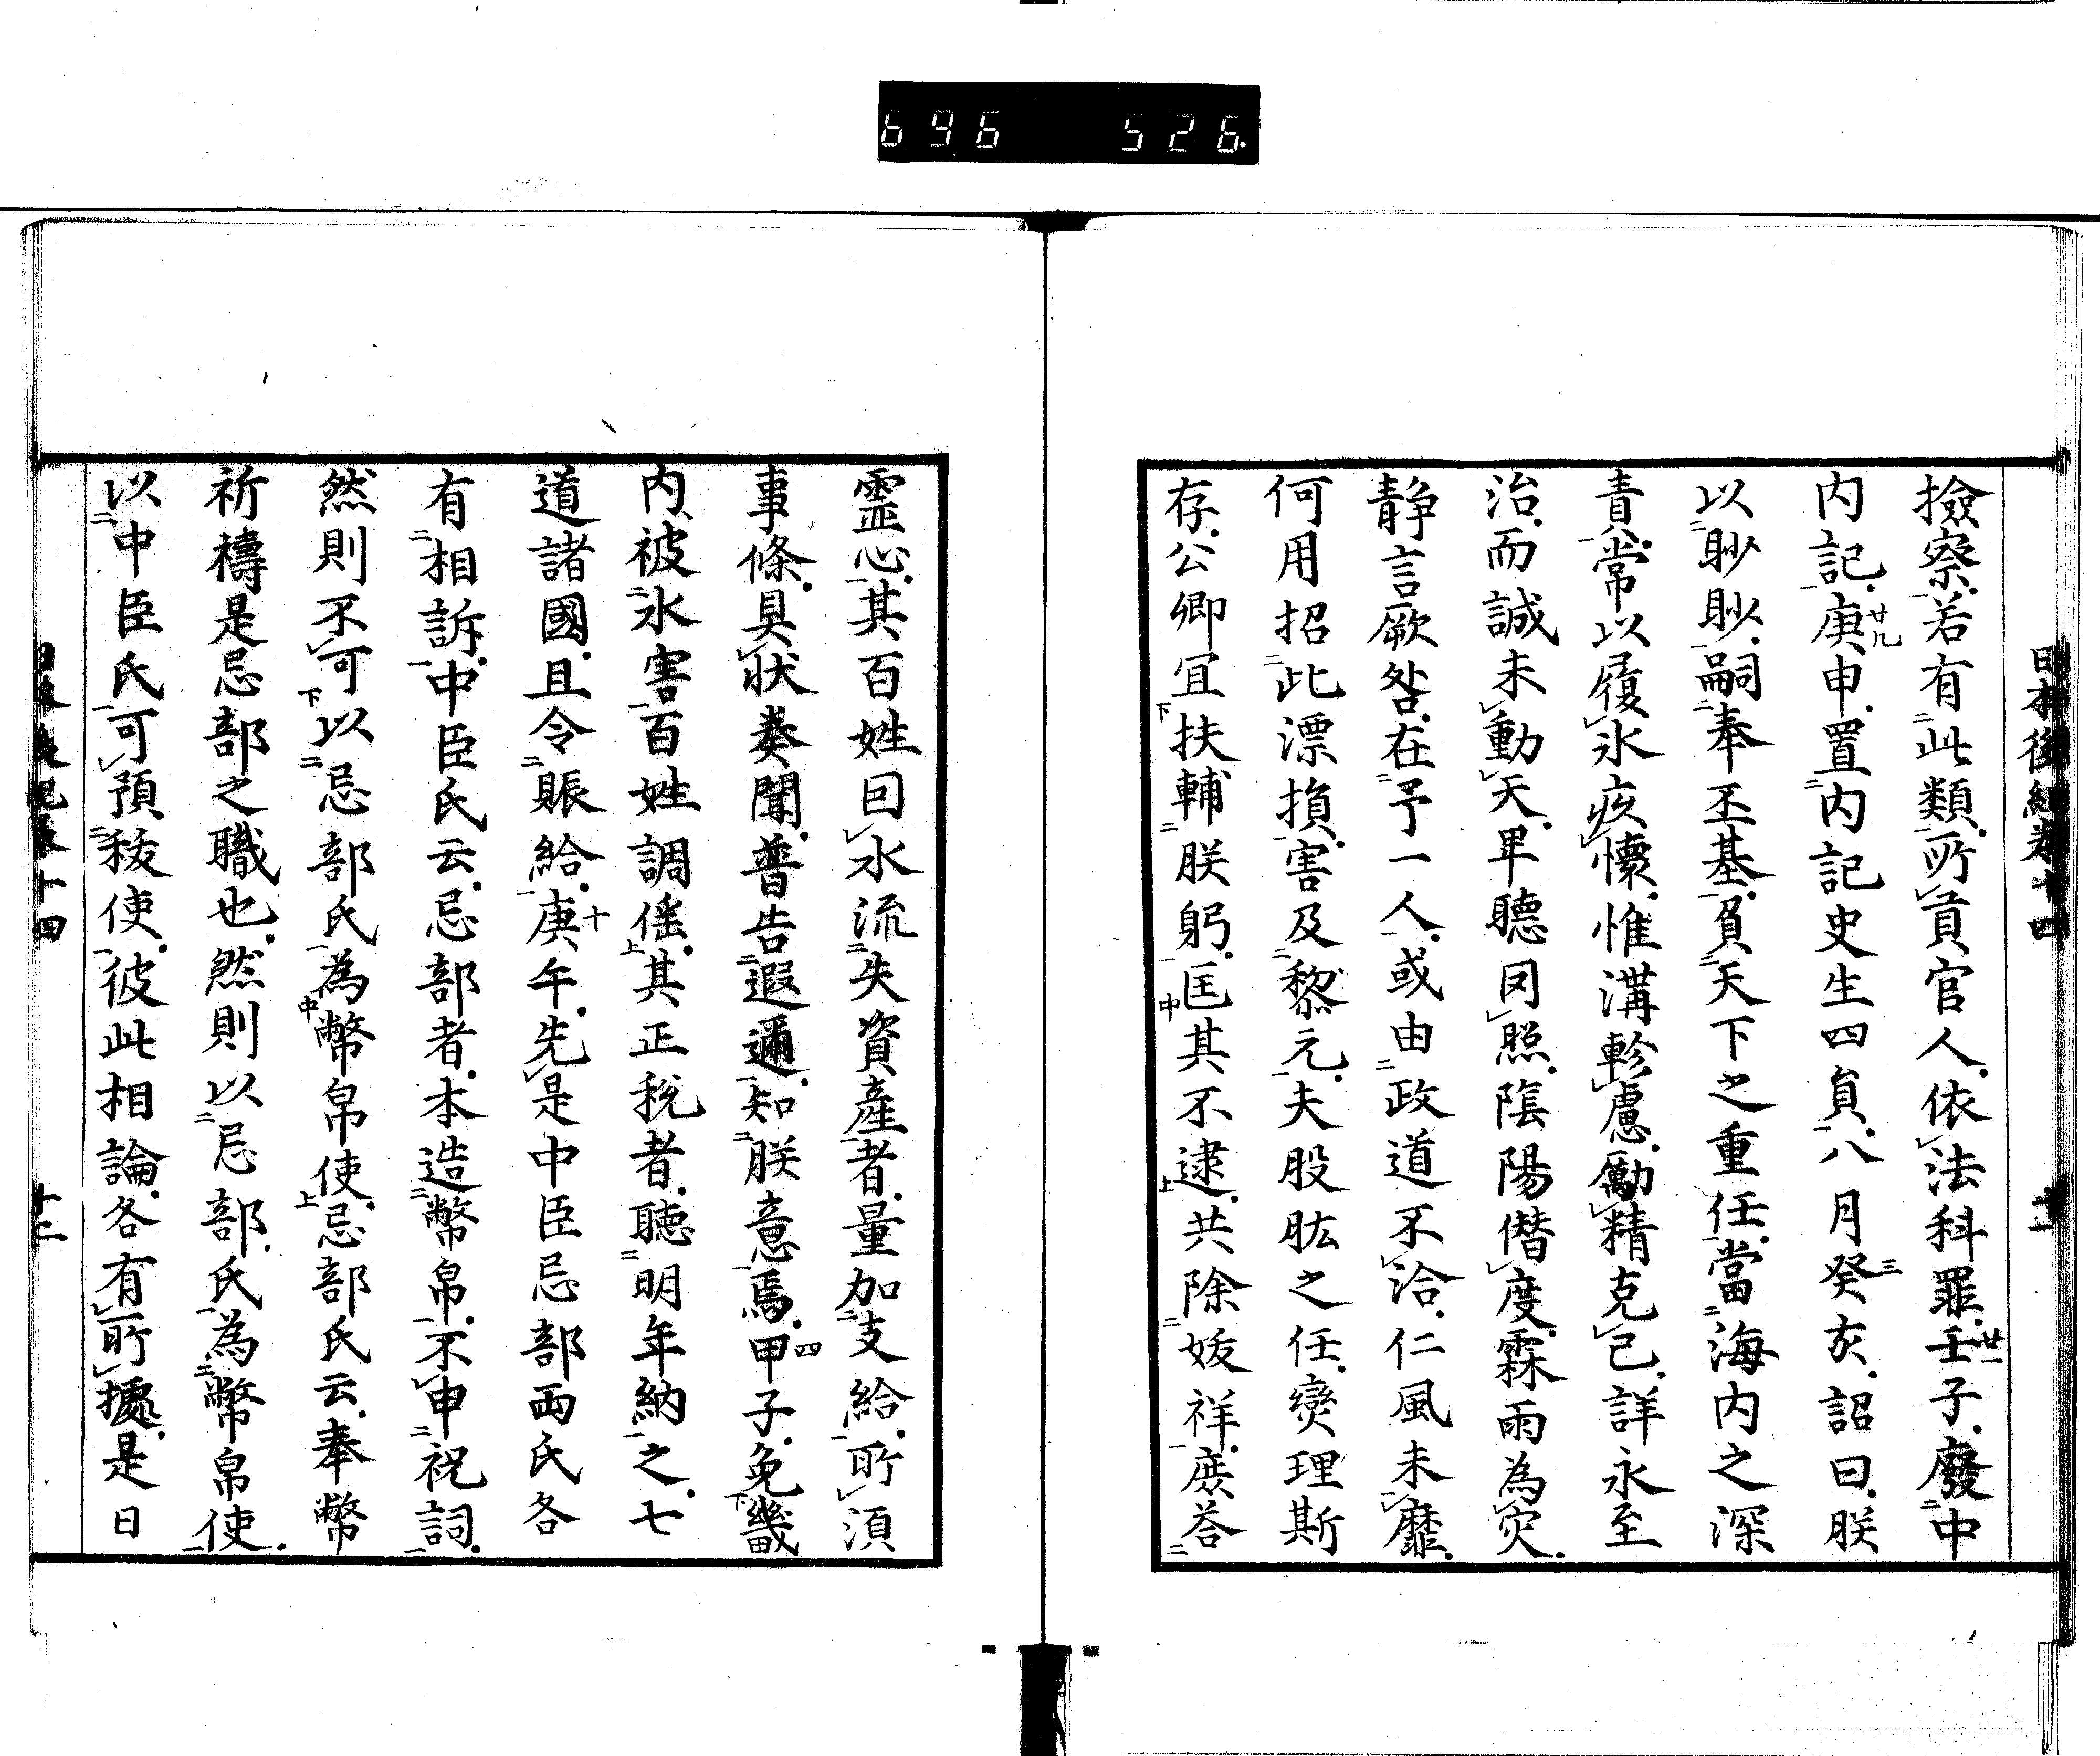 696 526
日本後紀卷十四
撿察若有此類所貢官人依法科罪壬子廢中
内記庚申置内記史生四員八月癸亥詔曰朕
以眇眇嗣奉丕基負天下之重任當海内之深
責常以履氷疚懷惟溝軫慮勵精克己詳永至
治而誠未動天卑聽罔照陰陽僭度霖雨為灾
静言厥咎在予一人或由政道不洽仁風未靡
何用招此漂損害及黎元夫股肱之任爕理斯
存公卿宜扶輔朕躬匡其不逮共除妖祥庶荅
靈心其百姓囙水流失資產者量加支給所須
事條具狀奏聞普告遐邇知朕意焉甲子免畿
内被水害百姓調徭其正税者聽明年納之七
道諸國且令賑給庚午先是中臣忌部兩氏各
有相訴中臣氏云忌部者本造幣帛不申祝詞
然則不可以忌部氏為幣帛使忌部氏云奉幣
祈禱是忌部之職也然則以忌部氏為幣帛使
以中臣氏可預秡使彼此相論各有所據是日
十四
十二